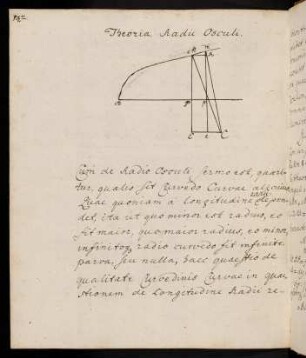 182
Theoria Radii Osculi.
Cum de Radio Osculi sermo est, quaeri-
tur, qualis sit Curvedo Curvae alicuius
Quae quoniam a longitudine radii depen-
det, ita ut quo minor est radius, eo
sit maior, quo maior radius, eo minor,
infinito radio curvedo sit infinite
parva. seu nulla, haec quaestio de
qualitate Curvedinis Curvas in quae
stionem de Longitudine Radii re-